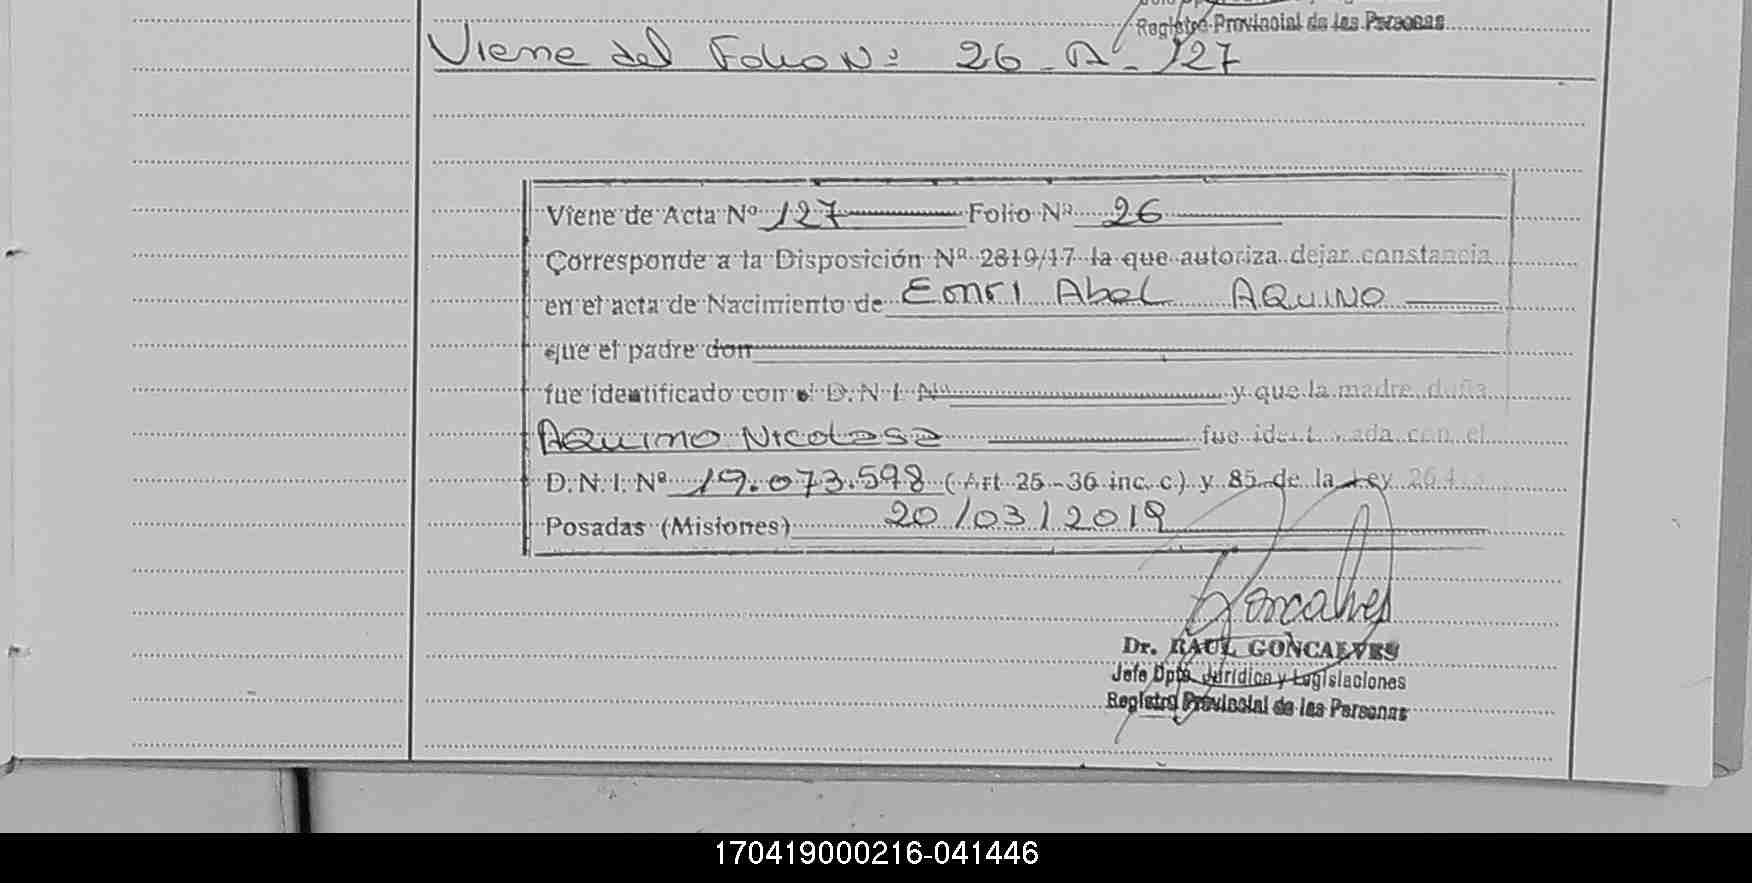 Registro Provincial de las Personas
Viene del Folio Nº 26 - A - 127
Viene de Acta Nº 127 Folio Nº 26
Corresponde a la Disposición Nº 2819/17 la que autoriza dejar constancia
en el acta de Nacimiento de Enri Abel AQUINO
que el padre don
fue identificado con el D.N.I. Nº y que la madre doña
AQUINO NICOLASA fue identificada con el
D.N.I. Nº 19.073.598 (Art 25-36 inc. c) y 85 de la Ley
Posadas (Misiones) 20/03/2019
Goncalves
Dr. RAUL GONCALVES
Jefe Dpto. Jurídico y Legislaciones
Registro Provincial de las Personas
170419000216-041446